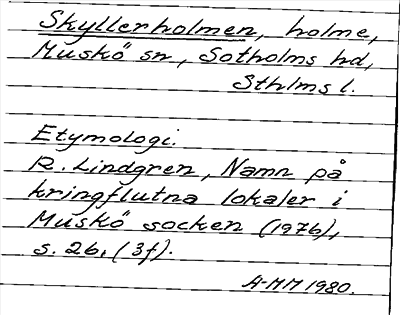 Skyllerholmen, holme,
Muskö sn, Sotholms hd,
Sthlms l.
Etymologi.
R. Lindgren, Namn på
kringflutna lokaler i
Muskö socken (1976),
s. 26, (3f).
A-MM 1980.